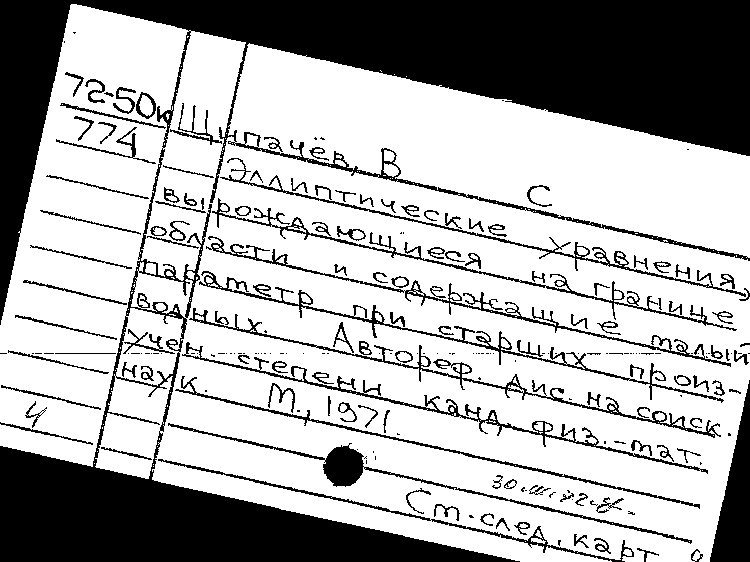 72-50к
774
Щипачёв, В С
Эллиптические уравнения,
вырождающиеся на границе
области и содержащие малый
параметр при старших произ-
водных. Автореф. дис. на соиск.
учен. степени канд. физ.-мат.
наук. М., 1971.
Ч
См. след. карт